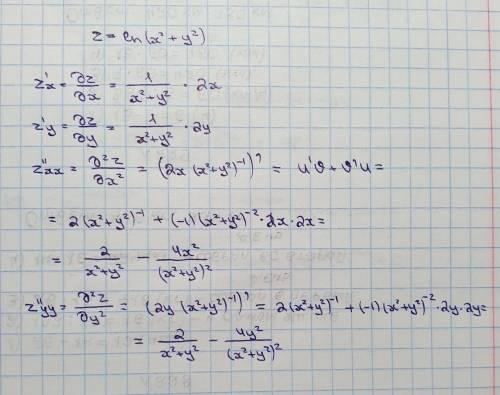 z = ln(x² + y²)
z'x = ∂z/∂x = 1/(x²+y²) · 2x
z'y = ∂z/∂y = 1/(x²+y²) · 2y
z''xx = ∂²z/∂x² = (2x (x²+y²)⁻¹)' = u'ϑ + ϑ'u =
= 2(x²+y²)⁻¹ + (-1)(x²+y²)⁻² · 2x · 2x =
= 2/(x²+y²) - 4x²/(x²+y²)²
z''yy = ∂²z/∂y² = (2y (x²+y²)⁻¹)' = 2(x²+y²)⁻¹ + (-1)(x²+y²)⁻² · 2y · 2y =
= 2/(x²+y²) - 4y²/(x²+y²)²